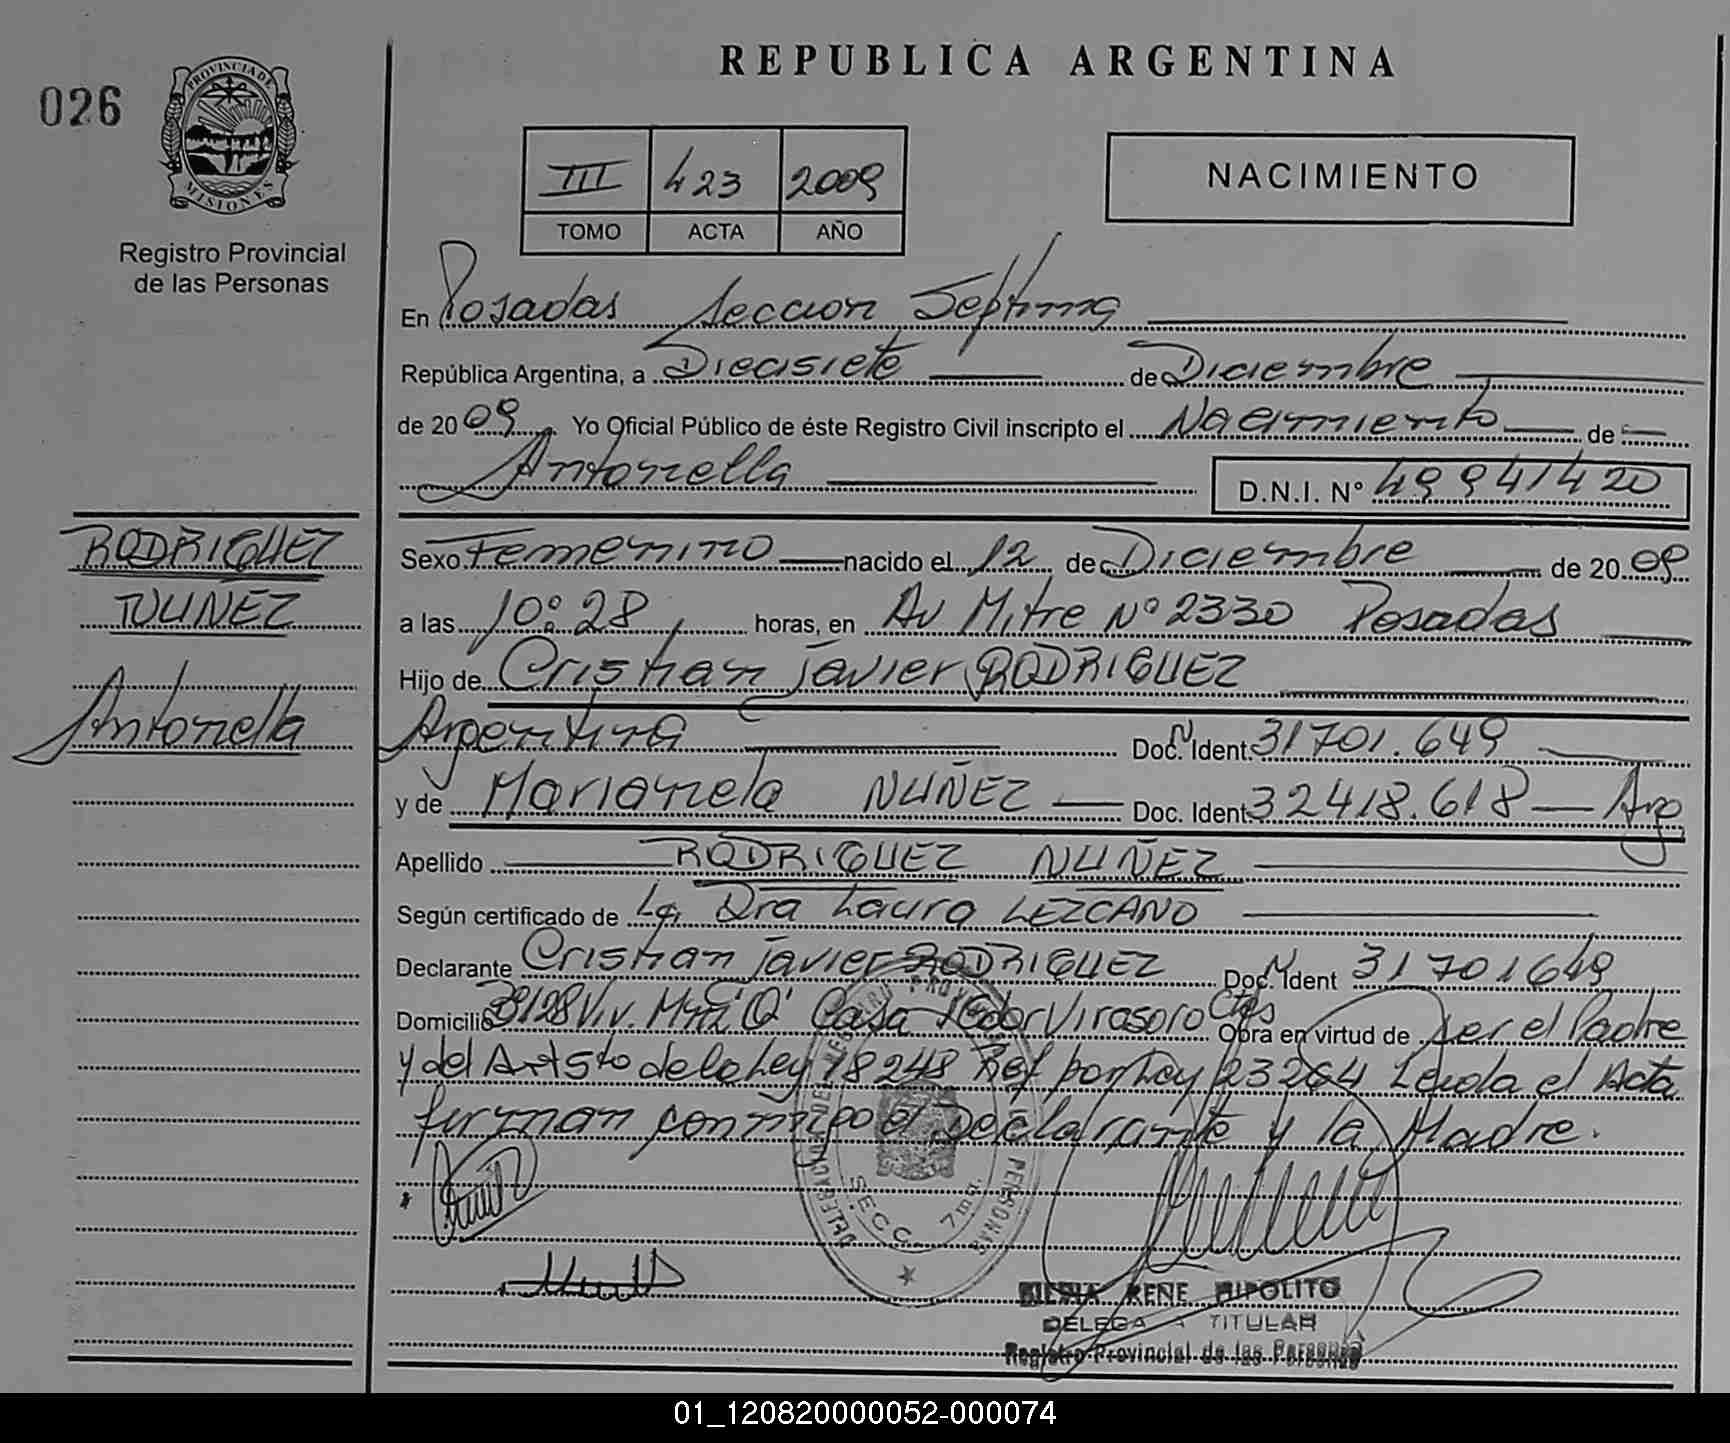 REPUBLICA ARGENTINA
026
PROVINCIA DE
MISIONES
Registro Provincial
de las Personas
III 423 2009
TOMO ACTA AÑO
NACIMIENTO
En Posadas Seccion Septima
República Argentina, a Diecisiete de Diciembre
de 2009 Yo Oficial Público de éste Registro Civil inscripto el Nacimiento de
Antonella D.N.I. N° 49941420
RODRIGUEZ
NUNEZ
Antonella
Sexo Femenino nacido el 12 de Diciembre de 2009
a las 10:28 horas, en Av Mitre N° 2330 Posadas
Hijo de Cristian Javier RODRIGUEZ
Argentina Doc. N Ident. 31701.649
y de Marianela NUÑEZ Doc. Ident. 32418.618 Arg
Apellido RODRIGUEZ NUÑEZ
Según certificado de La Dra Laura LEZCANO
Declarante Cristian Javier RODRIGUEZ Doc. N Ident 31701649
Domicilio Viv. "Q" Casa Virasoro Ctes Obra en virtud de ser el Padre
y del Art 5to de la Ley 18248 Ref por Ley 23264 Leida el Acta
firman conmigo el Declarante y la Madre.
SECC. 7ma.
RENE HIPOLITO
DELEGA TITULAR
Registro Provincial de las Personas
01_120820000052-000074